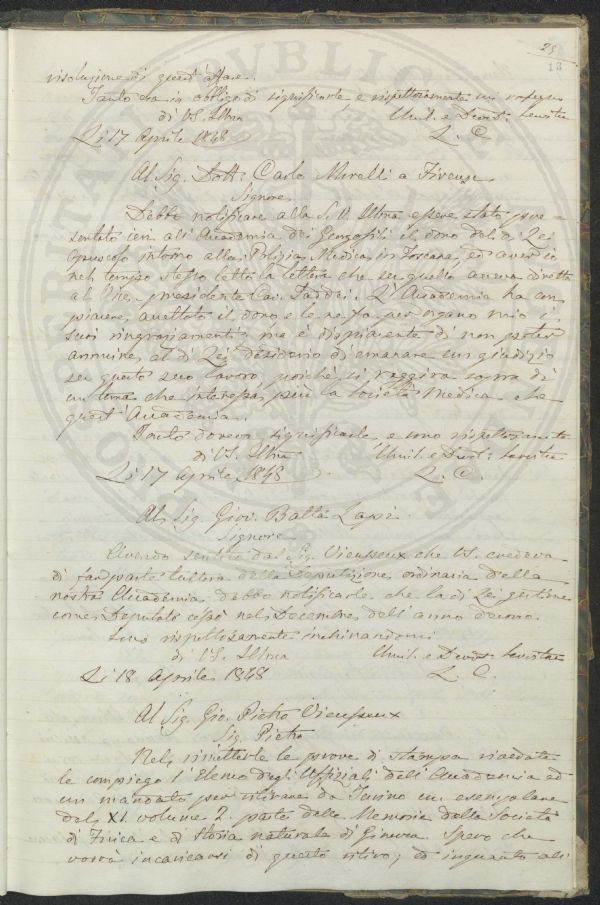 25
13
risoluzione di quest'affare.
Tanto era in obbligo di significarle, e rispettosamente mi raffermo
di VS. Illma Umil. e Devot: Servitre
Li 17 Aprile 1848 L. C.
Al Sig. Dott: Carlo Morelli a Firenze
Signore
Debbo notificare alla S. V. Illma essere stato pre=
sentato ieri all'Accademia dei Georgofili il dono del di Lei
Opuscolo intorno alla Polizia Medica in Toscana, ed aver io
nel tempo stesso letto la lettera che su quello aveva diretta
al Vice-presidente Cav. Taddei. L'Accademia ha con
piacere accettato il dono e le ne fa per organo mio i
suoi ringraziamenti, ma è dispiacente di non poter
annuire al di Lei desiderio di emanare un giudizio
su questo suo lavoro, poichè si raggira sopra di
un tema che interessa più la Società Medica che
quest'Accademia.
Tanto doveva significarle, e sono rispettosamente
di VS. Illma Umil. e Devot: Servitre
Li 17 Aprile 1848 L. C.
Al Sig. Giov. Batta Lapi
Signore
Avendo sentito dal Sig. Vieusseux che VS. credeva
di far parte tuttora della Deputazione ordinaria della
nostra Accademia debbo notificarle che la di Lei gestione
come Deputato cessò nel Decembre dell'anno decorso.
Sono rispettosamente inchinandomi
di VS. Illma Umil. e Devot: Servitre
Li 18 Aprile 1848 L. C.
Al Sig. Gio. Pietro Vieusseux
Sig. Pietro
Nel rimetterle le prove di stampa rivedute
le compiego l'Elenco degli Uffiziali dell'Accademia ed
un mandato per ritirare da Torino un esemplare
del XI volume 2. parte delle Memorie della Società
di Fisica e di Storia naturale di Ginevra. Spero che
vorrà incaricarsi di questo ritiro; ed inquanto all'